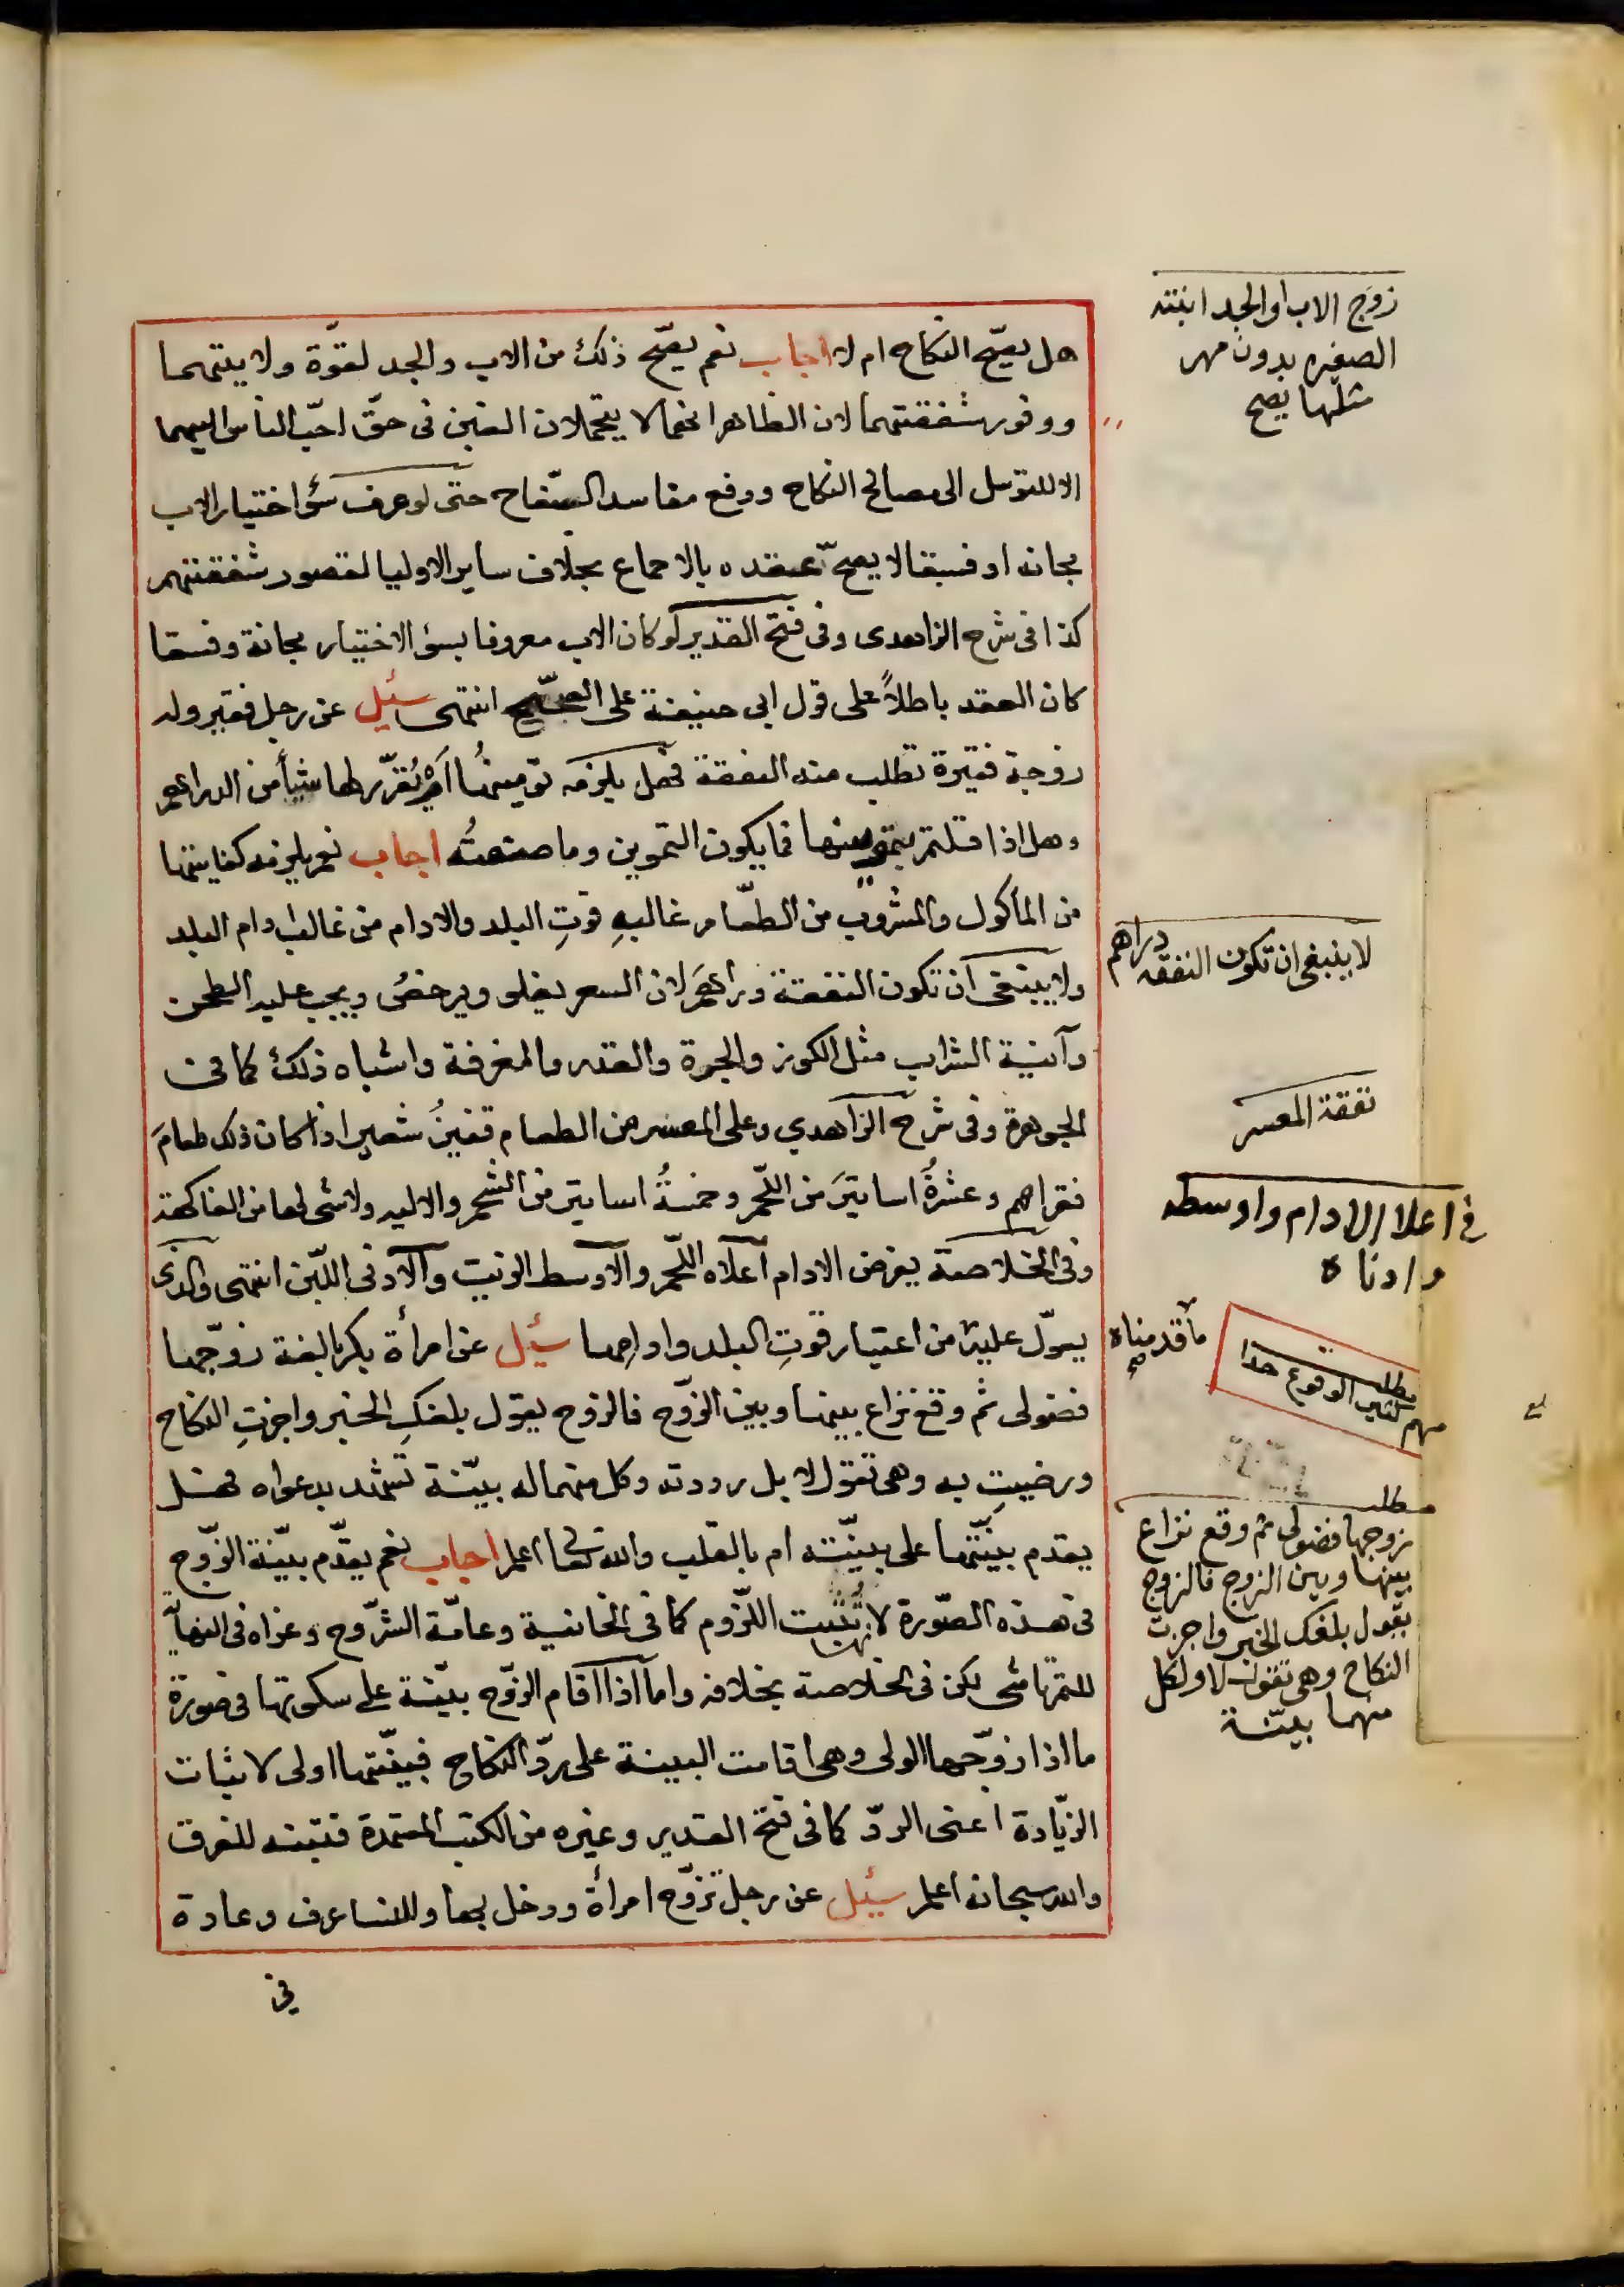 هل يصحّ النكاح ام لا اجاب نعم يصحّ ذلك من الاب والجد لقوّة ولايتهما
ووفور شفقتهما لان الظاهر انهما لا يتحملان الغبن فى حقّ احبّ الناس اليهما
الا للتوسل الى مصالح النكاح ودفع مفاسد السّفاح حتى لو عرف سؤ اختيار الاب
مجانة او فسقا لا يصحّ عقده بالاجماع بخلاف ساير الاوليا لقصور شفقتهم
كذا فى شرح الزاهدى وفى فتح القدير لو كان الاب معروفا بسؤ الاختيار مجانة وفسقا
كان العقد باطلاً على قول ابى حنيفة على الصّحيح انتهى سئيل عن رجل فقير وله
زوجة فقيرة تطلب منه النفقة فهل يلزمه تموينهُا اَمْ يُقرّر لها شيأ من الدراهم
وهل اذا قلتم بتموينها فما يكون التموين وما صنعتُه اجاب نعم يلزمه كفايتها
من المأكول والمشروب من الطعّام من غالبهِ قوتِ البلد والادام من غالب ادام البلد
ولا ينبغى ان تكون النفقة دراهمَ لان السعر يغلو ويرخصُ ويجب عليه الطحن
وآنية الشراب مثل الكوز والجرة والقدر والمغرفة واشباه ذلك كما فى
الجوهرة وفى شرح الزاهدي وعلى المعسر من الطعام قفيزُ شعير اذا كان ذلك طعامَ
فقراهم وعشرةُ اساتيرَ من اللّحم وخمسةُ اساتير من الشحم والاليه ولا شى لها من الفاكهة
وفى الخلاصة يفرض الادام اعلاه اللّحم والاوسط الزيت والادنى اللّبن انتهى والذى
يعوّل عليه من اعتبار قوتِ البلد وادامِها سئيل عن امرأة بكر بالغة زوّجها
فضولى ثم وقع نزاع بينها وبين الزوّج فالزوج يقول بلغكِ الخبر واجزتِ النكاح
ورضيتِ به وهى تقول لا بل رددته وكل منهما له بيّنة تشهد بدعواه فهل
يقدم بيّنتها على بيّنته ام بالقلب والله تعا اعلم اجاب نعم يقدّم بيّنة الزّوج
فى هذه الصّورة لانها تُثبت اللّزوم كما فى الخانية وعامّة الشرّوح وعزاه فى النهايّه
للتمرتاشى لكن فى الخلاصة بخلافه واما اذا اقام الزوّج بيّنة على سكوتها فى صورة
ما اذا زوّجها الولى وهى اقامت البينة على ردّ النكاح فبيّنتها اولى لاثبات
الزيّادة اعنى الردّ كما فى فتح القدير وغيره من الكتب المعتمدة فتنبه للفرق
والله سبحانه اعلم سئيل عن رجل تزوّج امرأة ودخل بها وللنسا عرف وعادة
فى
زوج الاب او الجد ابنته
الصغيره بدون مهر
مثلها يصح
لا ينبغى ان تكون النفقه دراهم
نفقة المعسر
فى اعلا الادام واوسطه
وادناه
ما قدمناه
صح
مطلب
مهم كثير الوقوع جدا
مطلب
زوجها فضولى ثم وقع نزاع
بينها وبين الزوج فالزوج
يقول بلغك الخبر واجزت
النكاح وهى تقول لا ولكل
منهما بيّنة